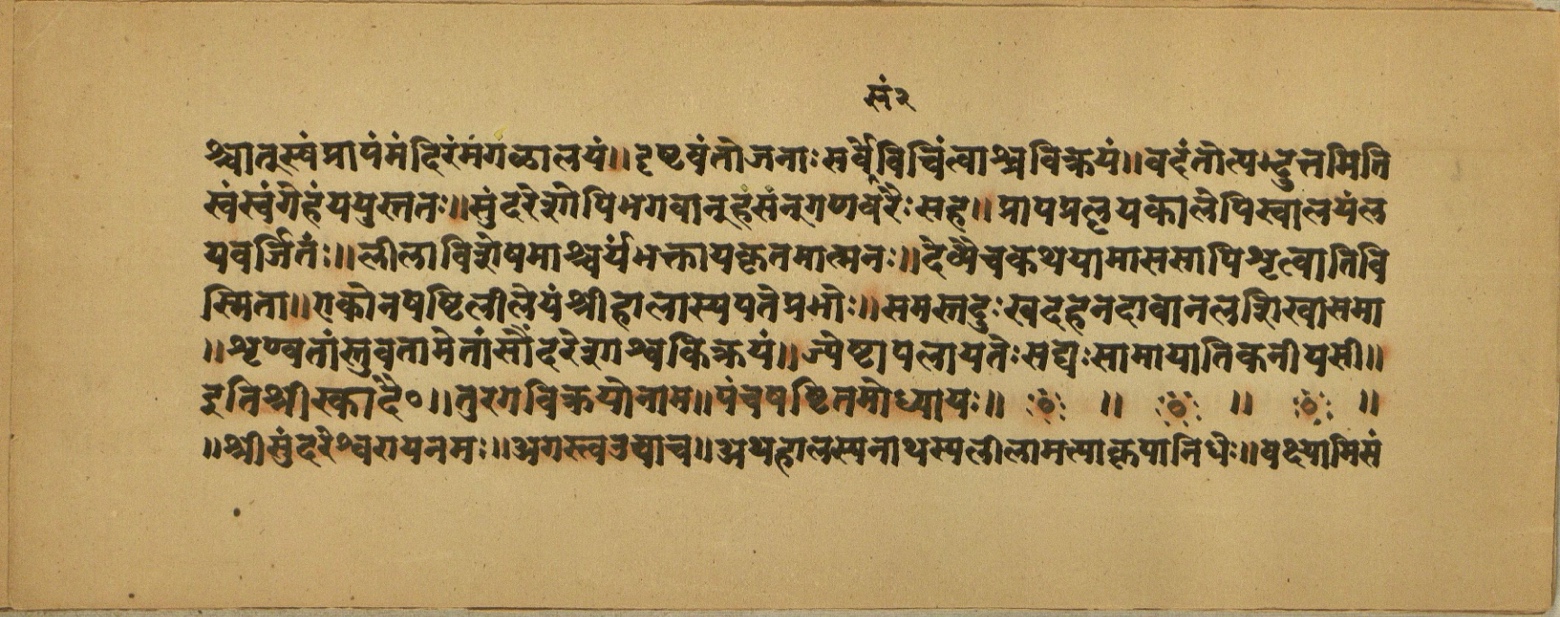 सं२
श्चातुस्वंप्रापंमंदिरंमंगळालयं॥दृष्टवंतोजनाःसर्वेविचिंत्वाश्वविक्रयं॥वदंतोत्यद्भुत्तमिति
स्वंस्वंगेहंययुस्ततः॥सुंदरेशोपिभगवानूहंसंनूगणवरैःसह॥प्रापप्रलृयकालेपिस्वालयंल
यवर्जितंः॥लीलाविशेषमाश्चर्यंभक्तायकृतमात्मनः॥देव्यैचकथयामाससापिशृत्वातिवि
स्मिता॥एकोनषष्टिलीलेयंश्रीहालास्यपतेप्रभोः॥समस्तदुःखदहनदावानलशिखासमा
॥शृण्वतांस्तुवतामेतांसौंदरेशाश्वकिक्रयं॥ज्येष्टापलायतेःसद्यःसामायातिकनीयसी॥
इतिश्रीस्कांदे०॥तुरगविक्रयोनाम॥पंचषष्टितमोध्यायः॥ ॥ ॥ ॥
॥श्रीसुंदरेश्वरायनमः॥अगस्त्यउवाच॥अथहालस्यनाथस्यलीलामत्याकृपानिधेः॥वक्ष्यामिसं